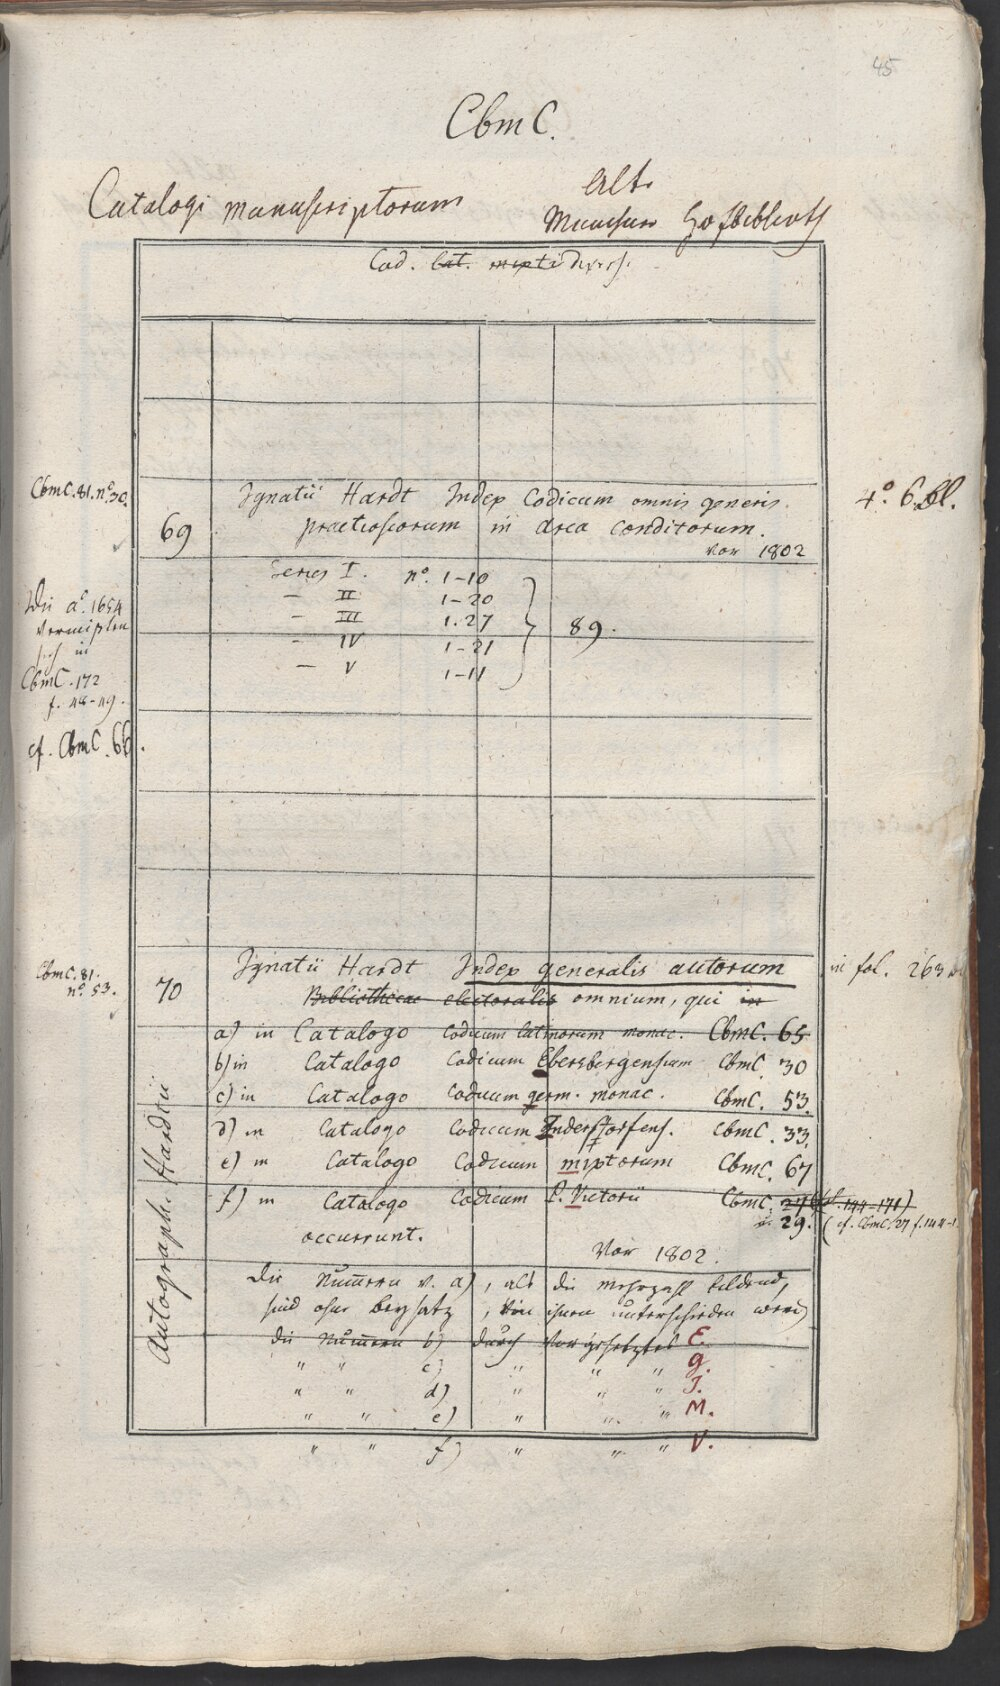 45
CbmC.
Catalogi manuscriptorum
Alte
Münchner Hofbibliothek
Cod. lat. mixti divers.
CbmC. 81. nº 30.
69
Ignatii Hardt Index Codicum omnis generis
praetiosiorum in arca conditorum.
vor 1802
4º. 6 Bl.
Series I. nº. 1-10
– II 1-20
– III 1.27
– IV 1-21
– V 1-11
89.
Die aº. 1654
vermißten
sich in
CbmC. 172
f. 48-49.
cf. CbmC. 66.
CbmC. 81.
nº. 53.
70
Ignatii Hardt Index generalis autorum
Bibliothecae electoralis omnium, qui in
in fol. 263 Bl.
a) in Catalogo codicum latinorum monac. CbmC. 65
b) in Catalogo codicum Ebersbergensium CbmC. 30
c) in Catalogo codicum germ. monac. CbmC. 53.
d) in Catalogo codicum Inderstorfens. CbmC. 33.
e) in Catalogo Codicum mixtorum CbmC. 67
f) in Catalogo Codicum P. Victorii CbmC. 27 (f. 144-171)
29. (cf. CbmC. 27 f. 144-1
occurrunt.
Vor 1802.
Autograph. Hardtii
Die Num̄ern v. a), als die Mehrzahl bildend,
sind ohne beysatz, von ihnen unterschieden werd
die Num̄ern b) durch vorgesetztes E.
" " c) " " " G.
" " d) " " " I.
" " e) " " " M.
" " f) " " " V.